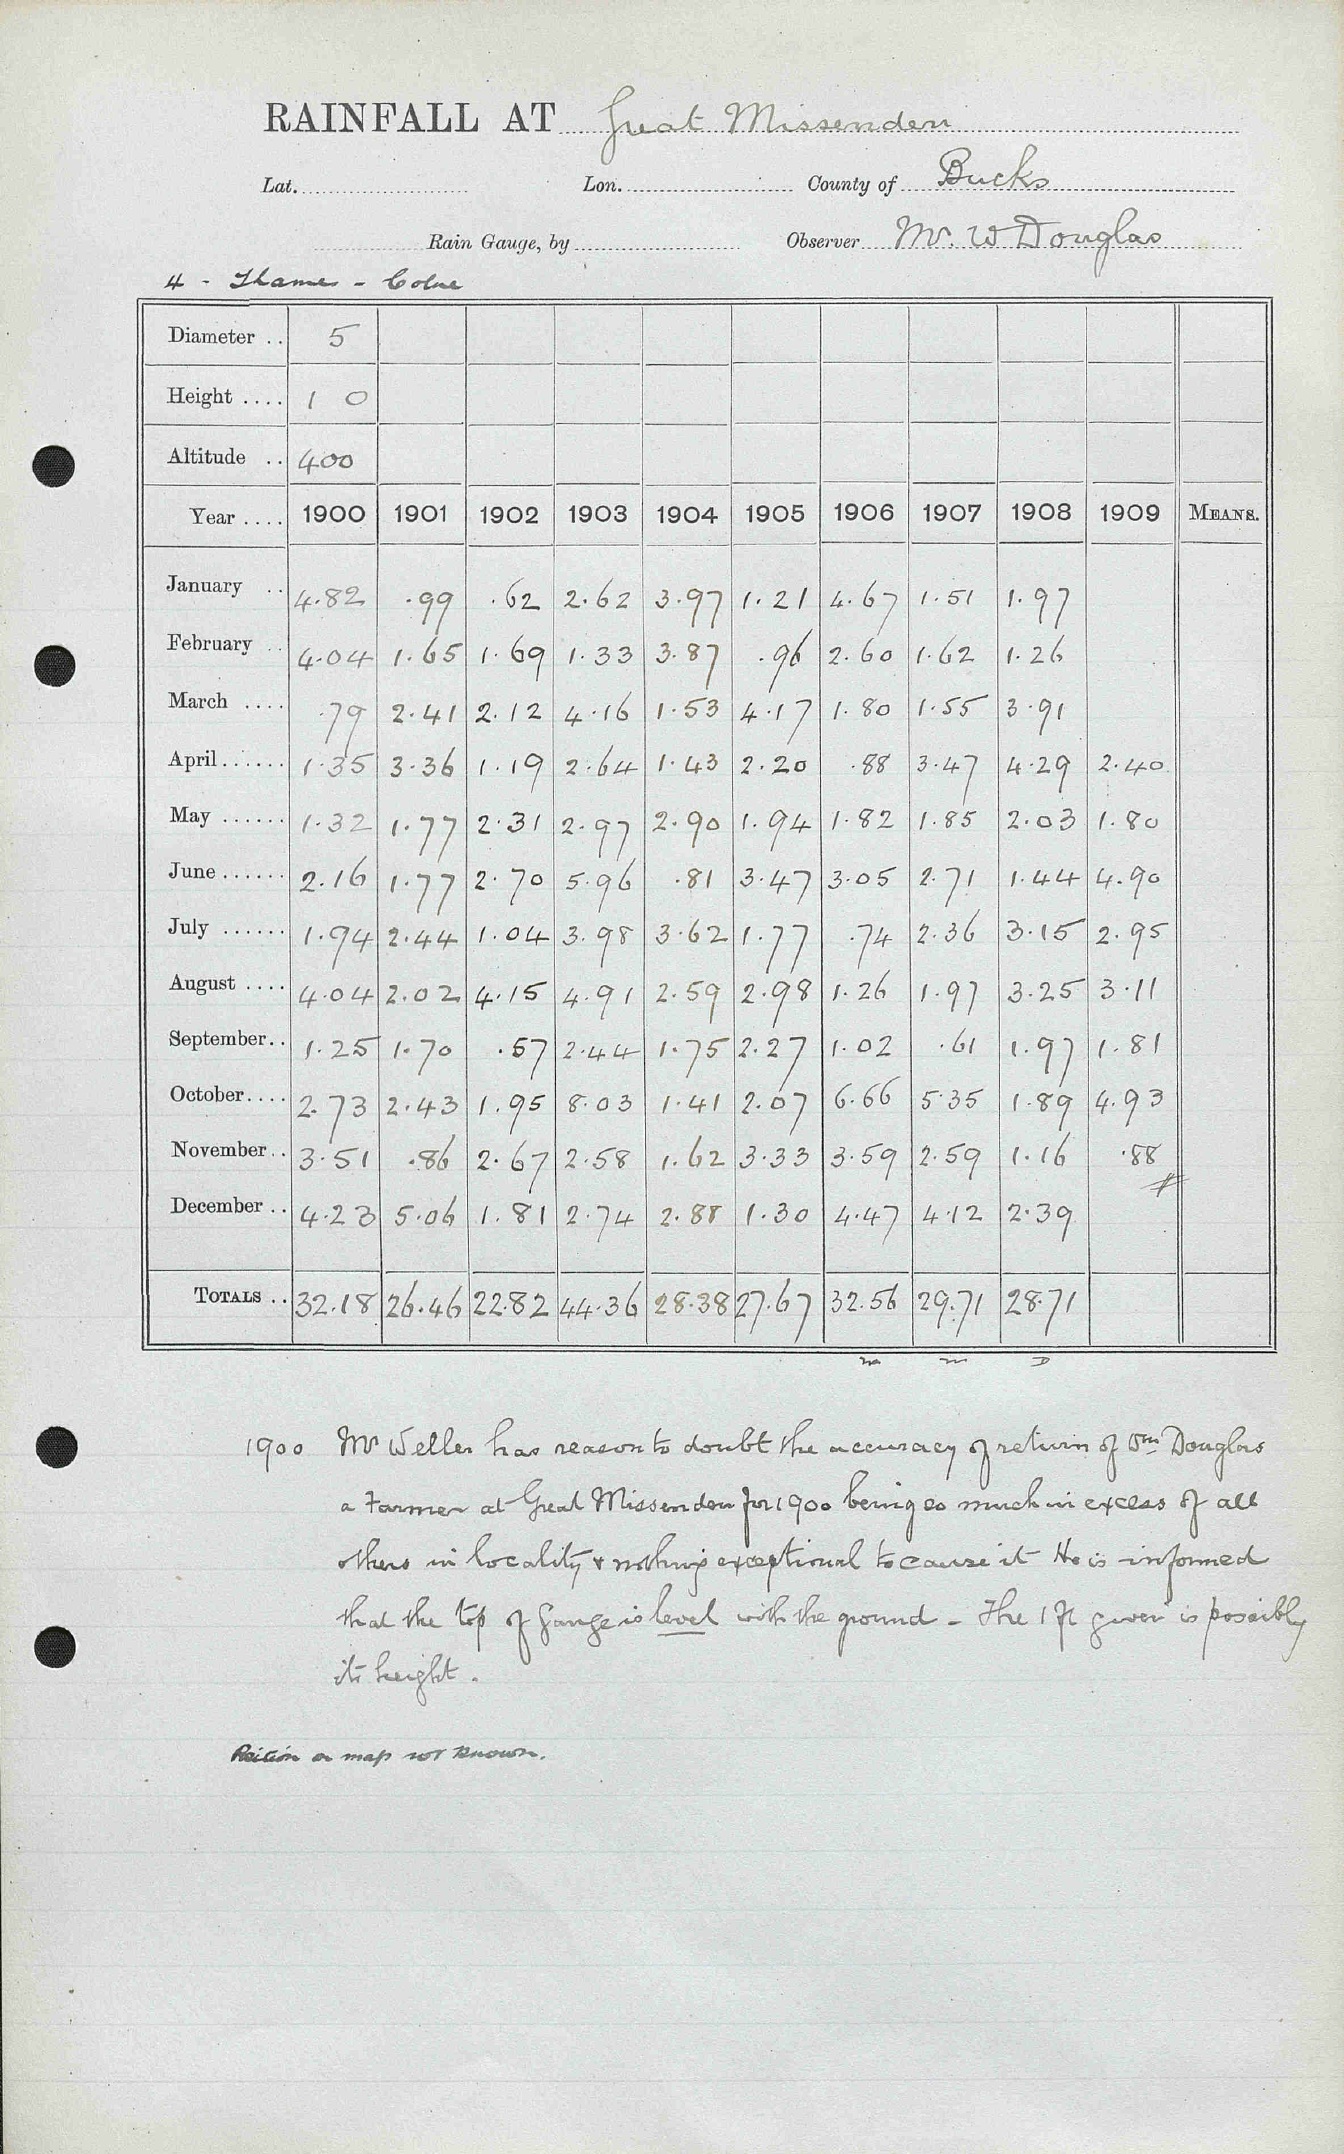 RAINFALL AT Great Missenden
Lat. Lon. County of Bucks
Rain Gauge, by Observer Mr. W Douglas
4 - Thames - Colne
Diameter .. 5
Height .... 1 0
Altitude .. 400
Year .... 1900 1901 1902 1903 1904 1905 1906 1907 1908 1909 MEANS.
January .. 4.82 .99 .62 2.62 3.97 1.21 4.67 1.51 1.97
February .. 4.04 1.65 1.69 1.33 3.87 .96 2.60 1.62 1.26
March .... .79 2.41 2.12 4.16 1.53 4.17 1.80 1.55 3.91
April...... 1.35 3.36 1.19 2.64 1.43 2.20 .88 3.47 4.29 2.40
May ...... 1.32 1.77 2.31 2.97 2.90 1.94 1.82 1.85 2.03 1.80
June...... 2.16 1.77 2.70 5.96 .81 3.47 3.05 2.71 1.44 4.90
July ...... 1.94 2.44 1.04 3.98 3.62 1.77 .74 2.36 3.15 2.95
August .... 4.04 2.02 4.15 4.91 2.59 2.98 1.26 1.97 3.25 3.11
September.. 1.25 1.70 .57 2.44 1.75 2.27 1.02 .61 1.97 1.81
October.... 2.73 2.43 1.95 8.03 1.41 2.07 6.66 5.35 1.89 4.93
November.. 3.51 .86 2.67 2.58 1.62 3.33 3.59 2.59 1.16 .88
December .. 4.23 5.06 1.81 2.74 2.88 1.30 4.47 4.12 2.39
TOTALS .. 32.18 26.46 22.82 44.36 28.38 27.67 32.56 29.71 28.71
m m D
1900 Mr Weller has reason to doubt the accuracy of return of Wm Douglas
a Farmer at Great Missenden for 1900 being so much in excess of all
others in locality & nothing exceptional to cause it He is informed
that the top of gauge is level with the ground - The 1 ft given is possibly
its height.
Position on map not known.